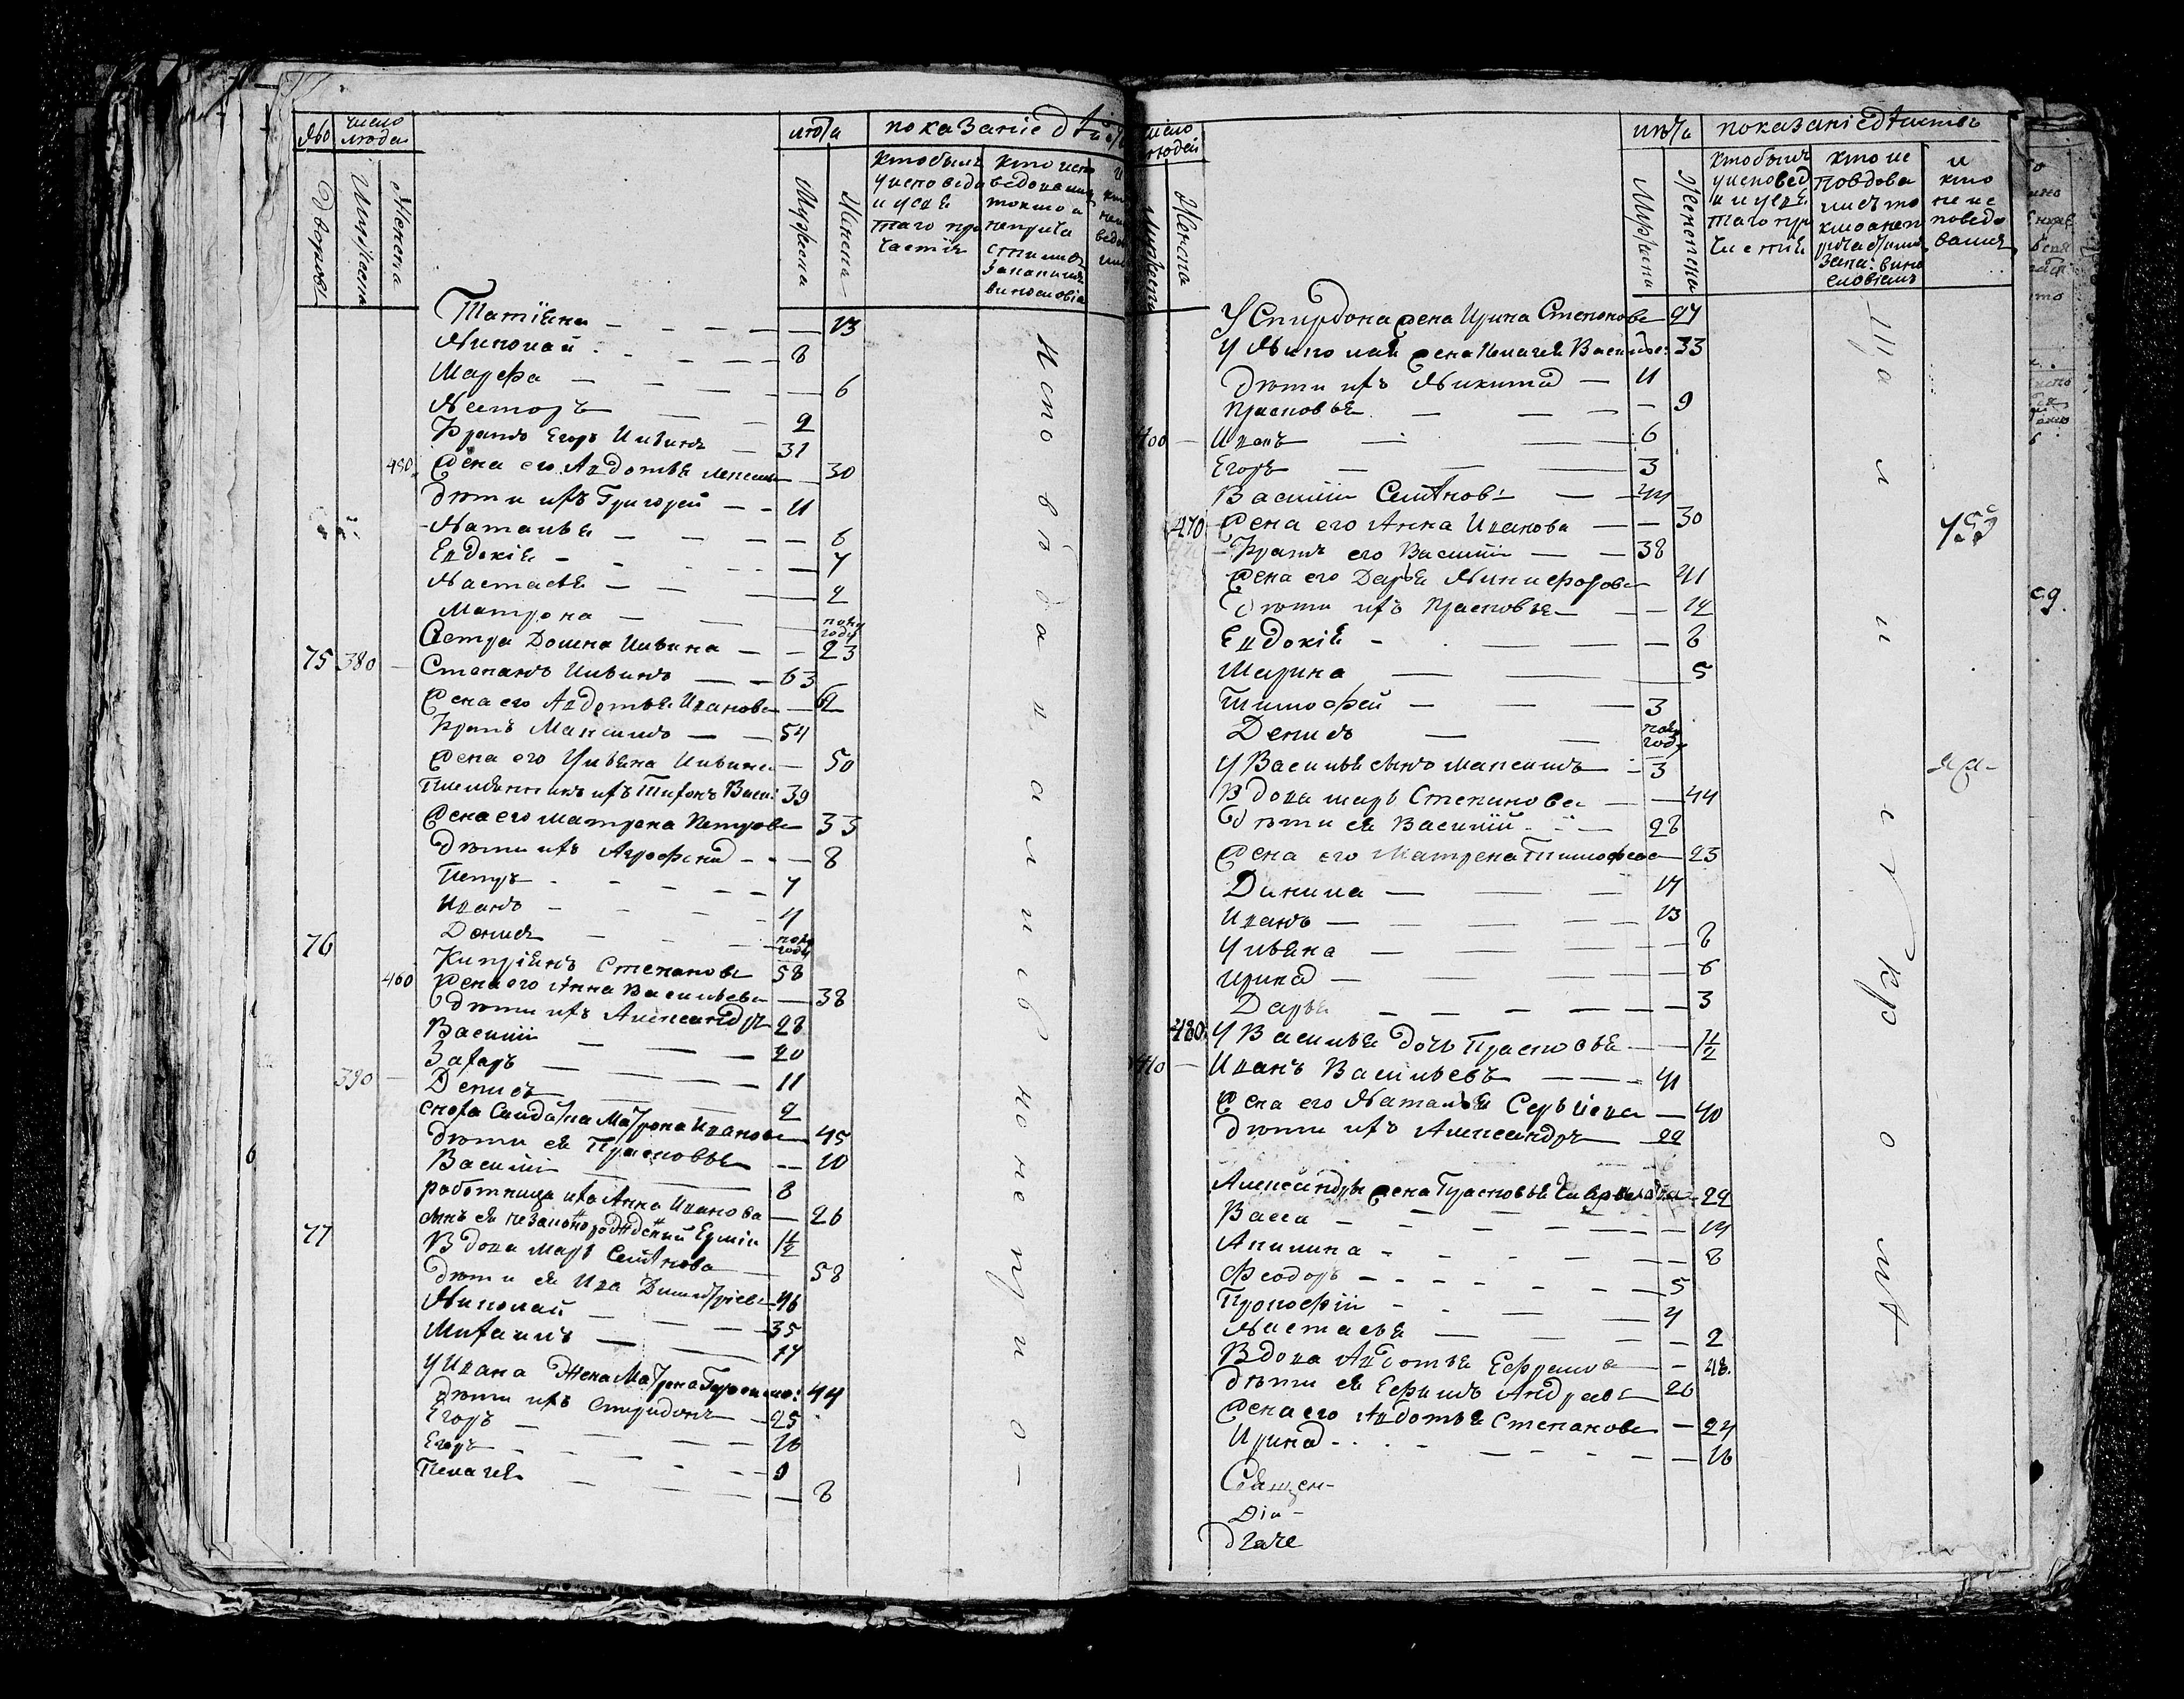 No число людей лѣта показаніе дѣйс
Дворовъ Мужеска Женска Мужеска Женска
кто былъ у исповеди и у свя таго при частія
кто испо ведовалис токмо а не прича стилис за какимъ винословіе
Татіяна 13
Николай 8
Марфа 6
Несторъ 2
Братъ Егоръ Ильинъ 31
450 Жена его Авдотья Алексеев 30
Дѣти ихъ Григорей 11
Наталья 6
Евдокія 4
Настасья 2
Матрона полу году
Сестра Домна Ильина 23
75 380 Степанъ Ильинъ 63
Жена его Авдотья Иванова 62
Братъ Максимъ 54
Жена его Ульяна Ильина 50
Племянникъ ихъ Тихонъ Васил: 39
Жена его Матрена Петрова 33
Дѣти ихъ Агрофена 8
Петръ 7
Иванъ 4
Денисъ полу году
76 Кипріянъ Степановъ 58
460 Жена его Анна Васильева 38
Дѣти ихъ Александръ 28
Василій 20
Захаръ 11
390 Денисъ 2
Сноха Солдатка Матрона Иванова 45
Дѣти ея Прасковья 10
Василій 8
работница ихъ Анна Иванова 26
сынъ ея незаконорожденный Ермил 1 1/2
77 Вдова Марья Семенова 58
Дѣти ея Иван Дмитріевъ 46
Николай 35
Михаилъ 17
У Ивана жена Матрена Герасимо: 44
Дѣти ихъ Спиридонъ 25
Егоръ 16
Егоръ 9
Пелагея 8
Исповѣдались и не прио-
число людей лѣта показаніе дѣиствъ
Мужеска Женска Мужеска Женска
кто былъ у исповед и и у свя таго при частія
кто ис поведова лись то кмо а неп ричастилис за ка: вино словіемъ
и кто не ис поведо вался
У Спиридона жена Ирина Степанова 27
У Николая жена Пелагея Василье: 33
Дѣти ихъ Никита 11
Прасковья 9
400 Иванъ 6
Егоръ 3
Василій Семеновъ 44
470 Жена его Анна Иванова 30
Братъ его Василій 38
Жена его Дарья Никифорова 41
Дѣти ихъ Прасковья 12
Евдокія 8
Марина 5
Тимофей 3
Денисъ полу году
У Василья сынъ Максимъ 3
Вдова Марья Степанова 44
Дѣти ея Василій 28
Жена его Матрена Тимофеева 23
Данила 17
Иванъ 13
Ульяна 8
Ирина 6
Дарья 3
480 У Василья дочь Прасковья 1 1/2
410 Иванъ Васильевъ 41
Жена его Наталья Сергѣева 40
Дѣти ихъ Александръ 22
Александра жена Прасковья Гаврилова 22
Васса 14
Акилина 8
Феодоръ 5
Прокофій 4
Настасья 2
Вдова Авдотья Ефремова 48
Дѣти ея Ефимъ Андреевъ 26
Жена его Авдотья Степанова 24
Ирина 16
Священ-
Діа-
Дьяче